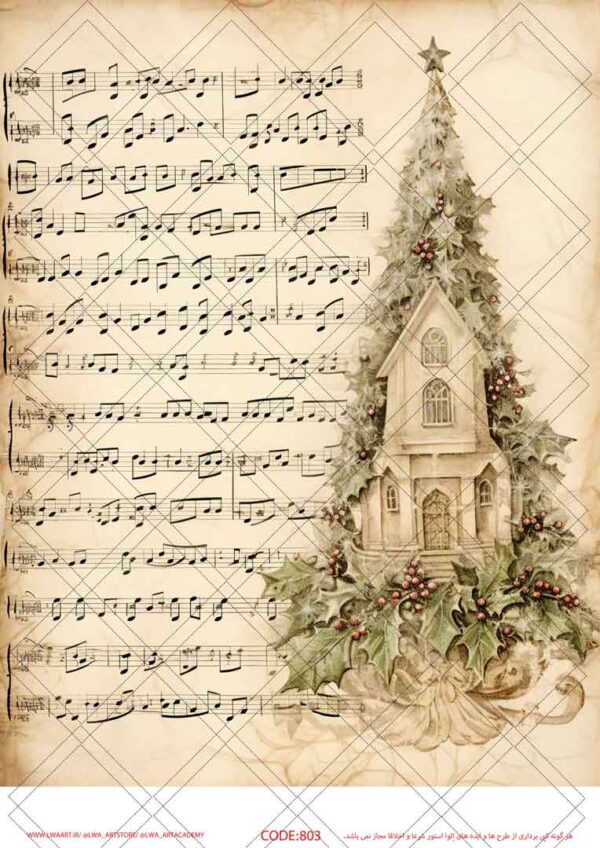 WWW.LWAART.IR/ @LWA_ARTSTORE/ @LWA_ARTACADEMY
CODE:803
هر گونه کپی برداری از طرح ها و ایده های إلوا استور شرعا و اخلاقا مجاز نمی باشد.